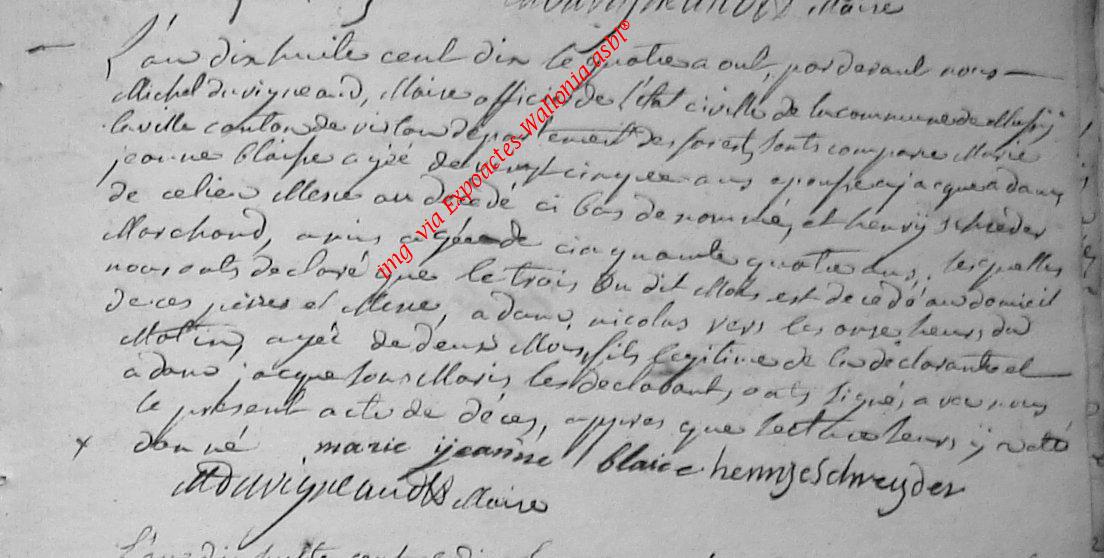 Maire
L'an dix huite cent dix le quatre aout, par devant nous
Michel duvigneaud, Maire officier de l'état civille de la commune de Mussy
la ville canton de virton département des forest, sonts compare Marie
jeanne blaise agée de vingt cinque ans epouse a jacque adam
de ce lieu Mere au décedé ci bas denommé, et henry schreder
Marchand, amis agée de cinquante quatre ans, lesquelles
nous onts declaré que le trois du dit Mois est decedé au domicil
de ces peres et Mere, adam, nicolas vers les onse heurs du
Matin, agée de deux Mois, fils legitime de la declarante et
adam jacque sons Maris les declarant, onts signé, avec nous
le présent acte de déces, appres que lecture leurs y etté
donné marie jjeanne blaice henryeSchreyder
MDuvigneaud Maire
img via Expoactes-Wallonia asbl®